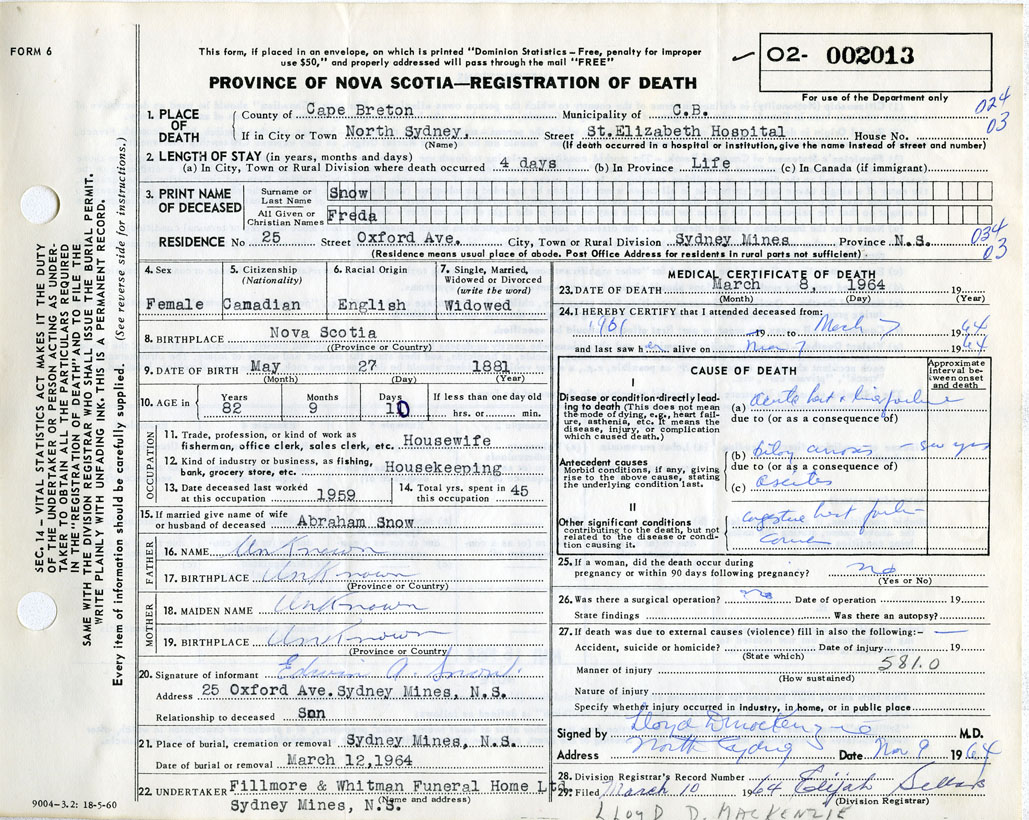 FORM 6
This form, if placed in an envelope, on which is printed "Dominion Statistics – Free, penalty for improper
use $50," and properly addressed will pass through the mail "FREE"
PROVINCE OF NOVA SCOTIA—REGISTRATION OF DEATH
02- 002013
For use of the Department only
024
03
1. PLACE OF DEATH
County of Cape Breton Municipality of C.B.
If in City or Town North Sydney, Street St.Elizabeth Hospital House No.
(Name) (If death occurred in a hospital or institution, give the name instead of street and number)
2. LENGTH OF STAY (in years, months and days)
(a) In City, Town or Rural Division where death occurred 4 days (b) In Province Life (c) In Canada (if immigrant)
3. PRINT NAME OF DECEASED
Surname or Last Name Snow
All Given or Christian Names Freda
034
03
RESIDENCE No 25 Street Oxford Ave. City, Town or Rural Division Sydney Mines Province N.S.
(Residence means usual place of abode. Post Office Address for residents in rural parts not sufficient)
4. Sex
Female
5. Citizenship (Nationality)
Canadian
6. Racial Origin
English
7. Single, Married, Widowed or Divorced (write the word)
Widowed
8. BIRTHPLACE Nova Scotia
((Province or Country)
9. DATE OF BIRTH May 27 1881
(Month) (Day) (Year)
10. AGE in Years 82 Months 9 Days 10 If less than one day old hrs. or min.
OCCUPATION
11. Trade, profession, or kind of work as
fisherman, office clerk, sales clerk, etc. Housewife
12. Kind of industry or business, as fishing,
bank, grocery store, etc. Housekeeping
13. Date deceased last worked
at this occupation 1959
14. Total yrs. spent in
this occupation 45
15. If married give name of wife
or husband of deceased Abraham Snow
FATHER
16. NAME UnKnown
17. BIRTHPLACE UnKnown
(Province or Country)
MOTHER
18. MAIDEN NAME UnKnown
19. BIRTHPLACE UnKnown
(Province or Country)
20. Signature of informant Edwin A. Snow.
Address 25 Oxford Ave. Sydney Mines, N.S.
Relationship to deceased Son
21. Place of burial, cremation or removal Sydney Mines, N.S.
Date of burial or removal March 12,1964
22. UNDERTAKER Fillmore & Whitman Funeral Home Ltd.
(Name and address)
Sydney Mines, N.S.
MEDICAL CERTIFICATE OF DEATH
23. DATE OF DEATH March 8, 1964 19
(Month) (Day) (Year)
24. I HEREBY CERTIFY that I attended deceased from:
1961 19 to March 7 1964
and last saw her alive on 7 1964
CAUSE OF DEATH
Approximate interval between onset and death
I
Disease or condition directly leading to death (This does not mean the mode of dying, e.g., heart failure, asthenia, etc. It means the disease, injury, or complication which caused death.)
(a) acute heart failure
due to (or as a consequence of)
Antecedent causes
Morbid conditions, if any, giving rise to the above cause, stating the underlying condition last.
(b)
due to (or as a consequence of)
(c) ascites
II
Other significant conditions
contributing to the death, but not related to the disease or condition causing it.
congestive heart
25. If a woman, did the death occur during
pregnancy or within 90 days following pregnancy? no
(Yes or No)
26. Was there a surgical operation? no Date of operation 19
State findings Was there an autopsy?
27. If death was due to external causes (violence) fill in also the following:–
Accident, suicide or homicide? Date of injury 19
(State which)
581.0
Manner of injury
(How sustained)
Nature of injury
Specify whether injury occurred in industry, in home, or in public place
Signed by Lloyd D MacKenzie M.D.
Address North Sydney Date 9 1964
28. Division Registrar's Record Number
29. Filed March 10 1964 Elijah
(Division Registrar)
LLOYD D. MACKENZIE
9004–3.2: 18-5-60
SEC. 14 – VITAL STATISTICS ACT MAKES IT THE DUTY
OF THE UNDERTAKER OR PERSON ACTING AS UNDERTAKER
TO OBTAIN ALL THE PARTICULARS REQUIRED
IN THE "REGISTRATION OF DEATH" AND TO FILE THE
SAME WITH THE DIVISION REGISTRAR WHO SHALL ISSUE THE BURIAL PERMIT.
WRITE PLAINLY WITH UNFADING INK. THIS IS A PERMANENT RECORD.
Every item of information should be carefully supplied. (See reverse side for instructions.)